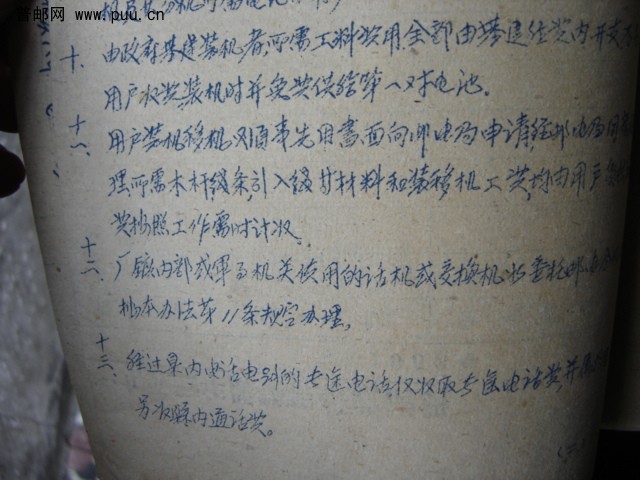 晋邮网 www.puu.cn
十、由政府基建装机者,所需工料费用全部由基建经费内开支
用户收费装机时并免费供给第一对电池。
十一、用户装机移机必须事先用书面向邮电局申请经邮电局同意
理所需木杆线条,引入线等材料和装移机工费,均由用户
费按照工作需时计收。
十二、厂矿内部或军事机关使用的话机或交换机如委托邮
按本办法第11条规定办理,
十三、经过县内电话的专途电话仅收取专途电话费并
另收县内通话费。